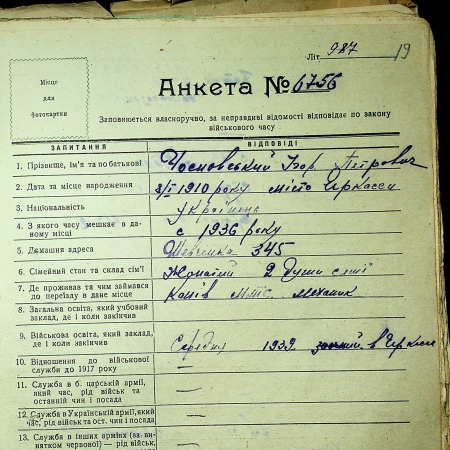 Літ 987 19
Місце
для
фотокартки
Анкета № 6756
Заповнюється власноручно, за неправдиві відомості відповідає по закону
військового часу
ЗАПИТАННЯ ВІДПОВІДІ
1. Прізвище, ім'я та по батькові Ігор Петрович
2. Дата та місце народження 1910 року місто Черкаси
3. Національність Українець
4. З якого часу мешкає в да-
ному місці с 1936 року
5. Домашня адреса Шевченка 345
6. Сімейний стан та склад сім'ї Жонатий 2 души сімї
7. Де проживав та чим займався
до переїзду в дане місце Канів МТС механик
8. Загальна освіта, який учбовий
заклад, де і коли закінчив
9. Військова освіта, який заклад,
де і коли закінчив Середня 1932 в Черкаси
10. Відношення до військової
служби до 1917 року —
11. Служба в б. царській армії,
який час, рід військ та
останній чин і посада —
12. Служба в Українській армії, який
час, рід військ та ост. чин і посада —
13. Служба в інших арміях (за ви-
нятком червоної) — рід військ, —